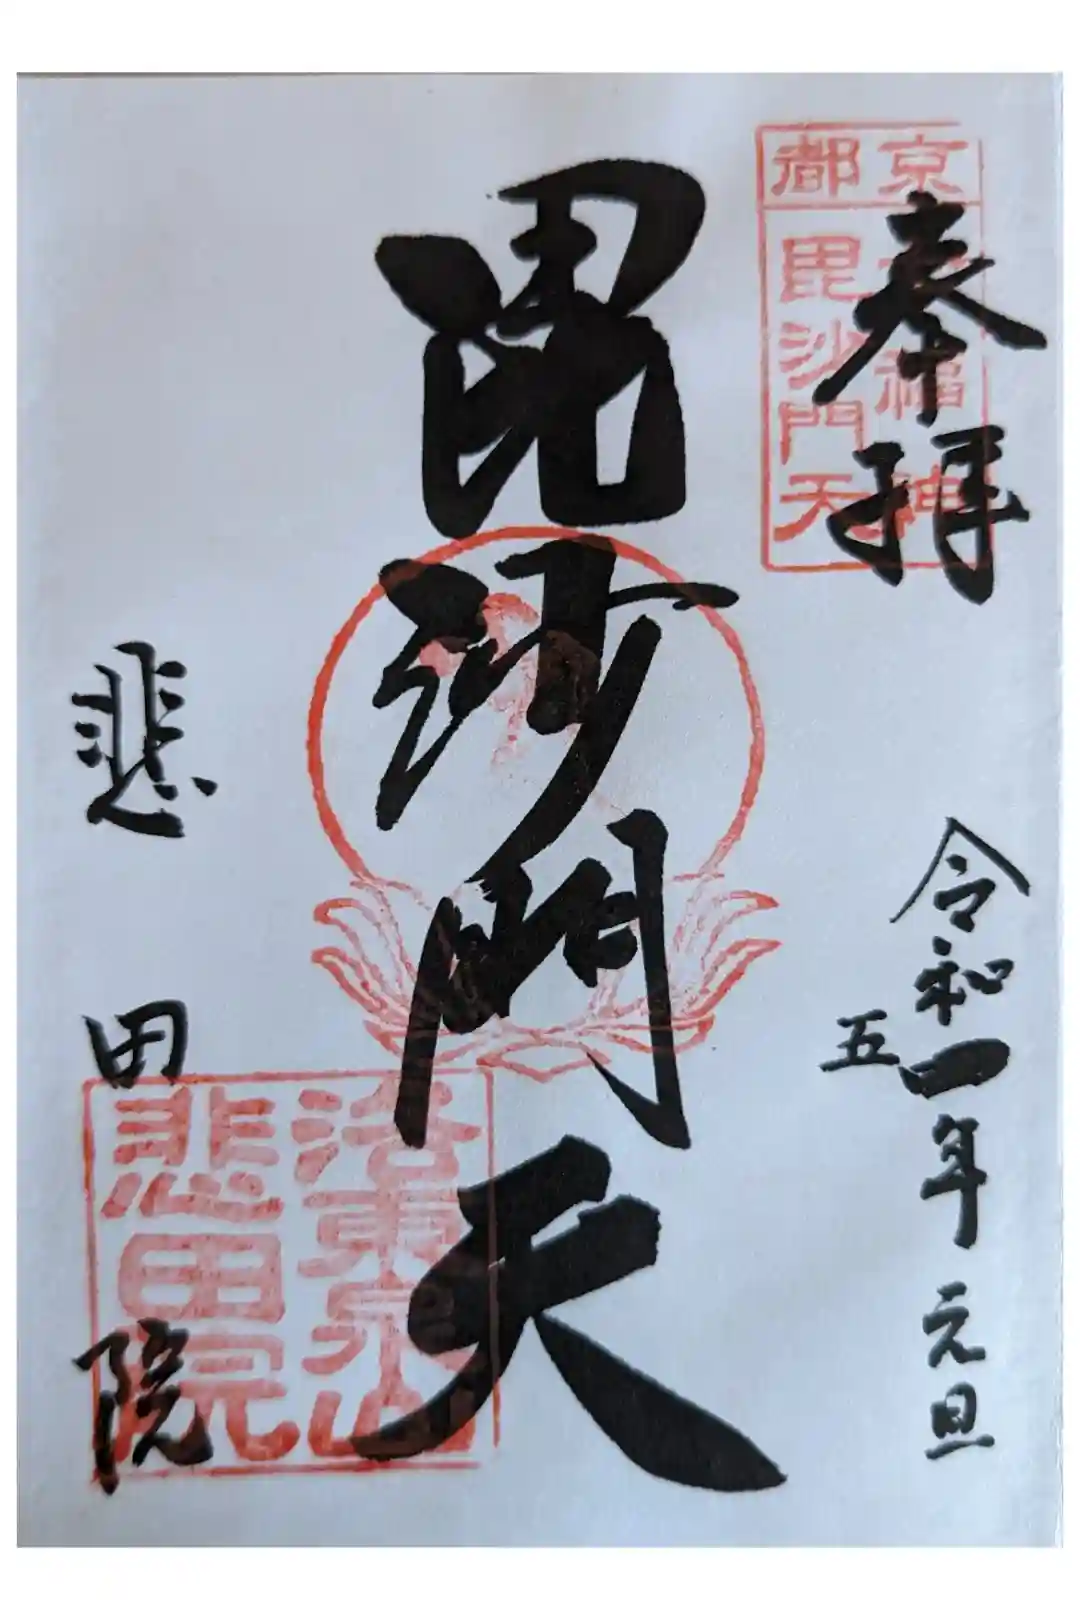 奉拝
令和五年元旦
毘沙門天
悲田院
京都
七福神
毘沙門天
洛東泉山
悲田院